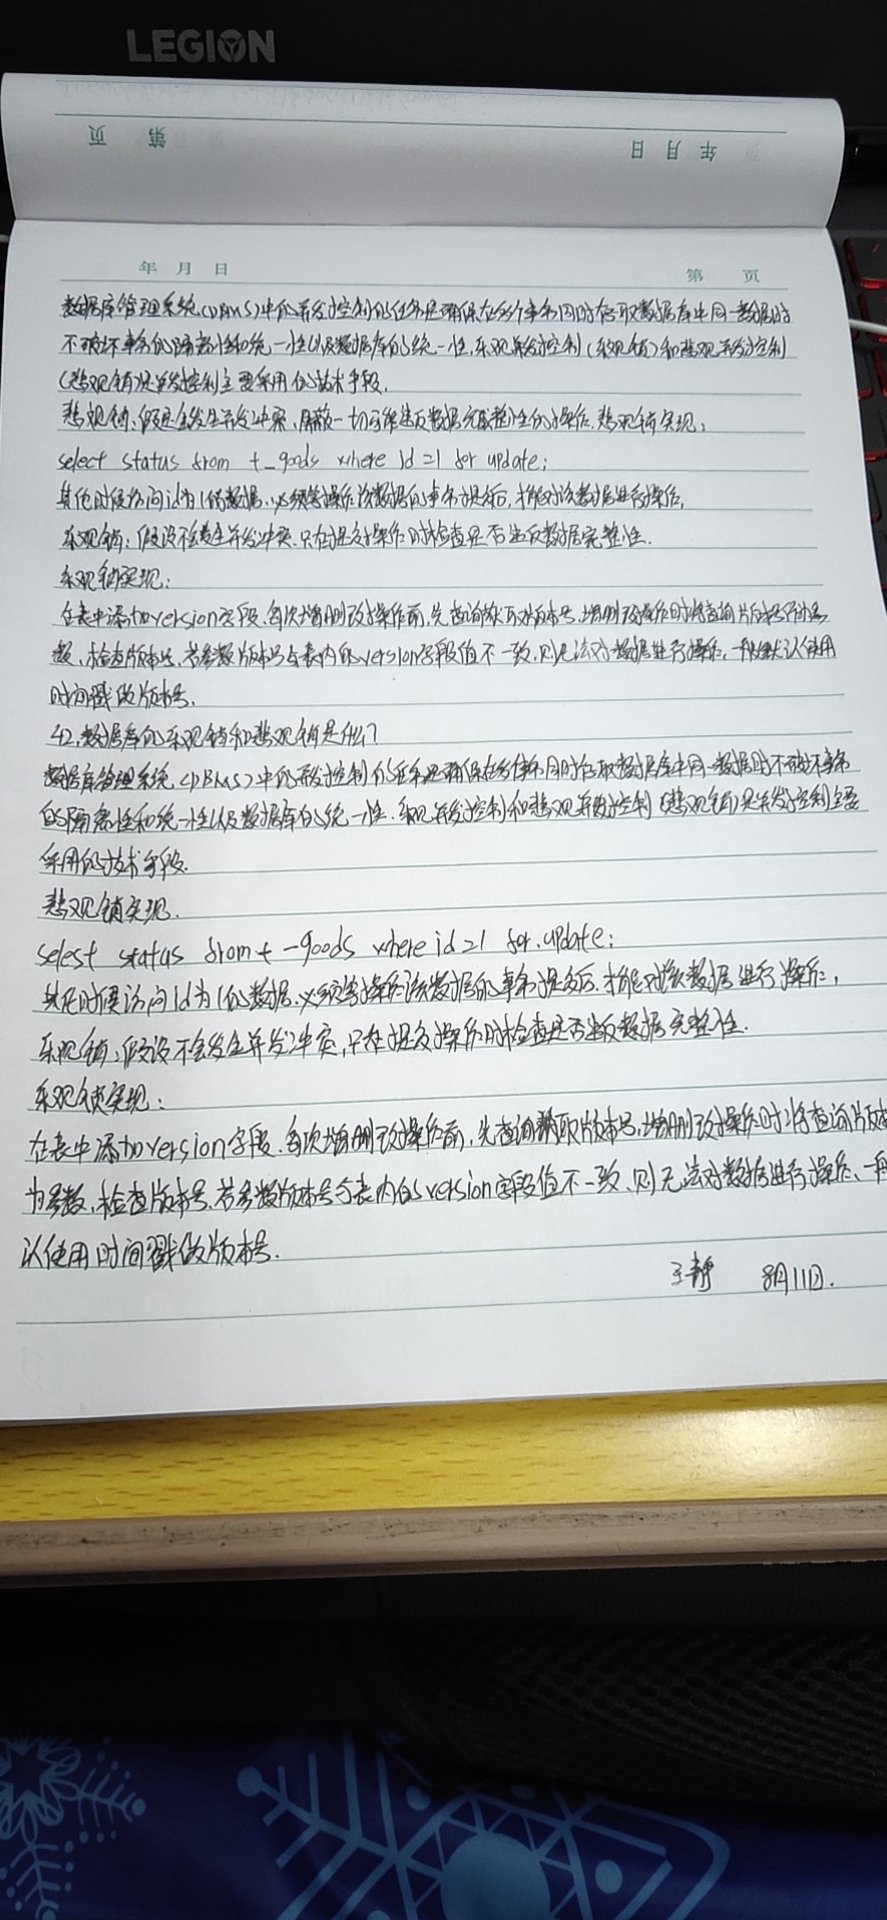 LEGION
年 月 日
第 页
年 月 日 第 页
数据库管理系统(DBMS)中的并发控制的任务是确保在多个事务同时存取数据库中同一数据时
不破坏事务的隔离性和统一性以及数据库的统一性,乐观并发控制(乐观锁)和悲观并发控制
(悲观锁)是并发控制主要采用的技术手段.
悲观锁:假定会发生并发冲突,屏蔽一切可能违反数据完整性的操作.悲观锁实现:
select status from t_goods where id=1 for update;
其他时候访问id为1的数据.必须等操作该数据的事务提交后,才能对该数据进行操作,
乐观锁:假设不会发生并发冲突.只在提交操作时检查是否违反数据完整性.
乐观锁实现:
在表中添加version字段.每次增删改操作前,先查询获取版本号,增删改操作时将查询版本号作为参
数,检查版本号,若参数版本号与表内的version字段值不一致,则无法对数据进行操作,一般默认使用
时间戳做版本号.
42.数据库的乐观锁和悲观锁是什么?
数据库管理系统(DBMS)中的并发控制的任务是确保在多个事务同时存取数据库中同一数据时不破坏事务
的隔离性和统一性以及数据库的统一性.乐观并发控制和悲观并发控制(悲观锁)是并发控制主要
采用的技术手段.
悲观锁实现.
selest status from t-goods where id=1 for.update;
其他时候访问id为1的数据.必须等操作该数据的事务提交后.才能对该数据进行操作;
乐观锁:假设不会发生并发冲突,只在提交操作时检查是否违反数据完整性.
乐观锁实现:
在表中添加version字段.每次增删改操作前,先查询获取版本号,增删改操作时将查询版本
为参数,检查版本号.若参数版本号与表内的version字段值不一致.则无法对数据进行操作、一般
认使用时间戳做版本号.
王静 8月11日.